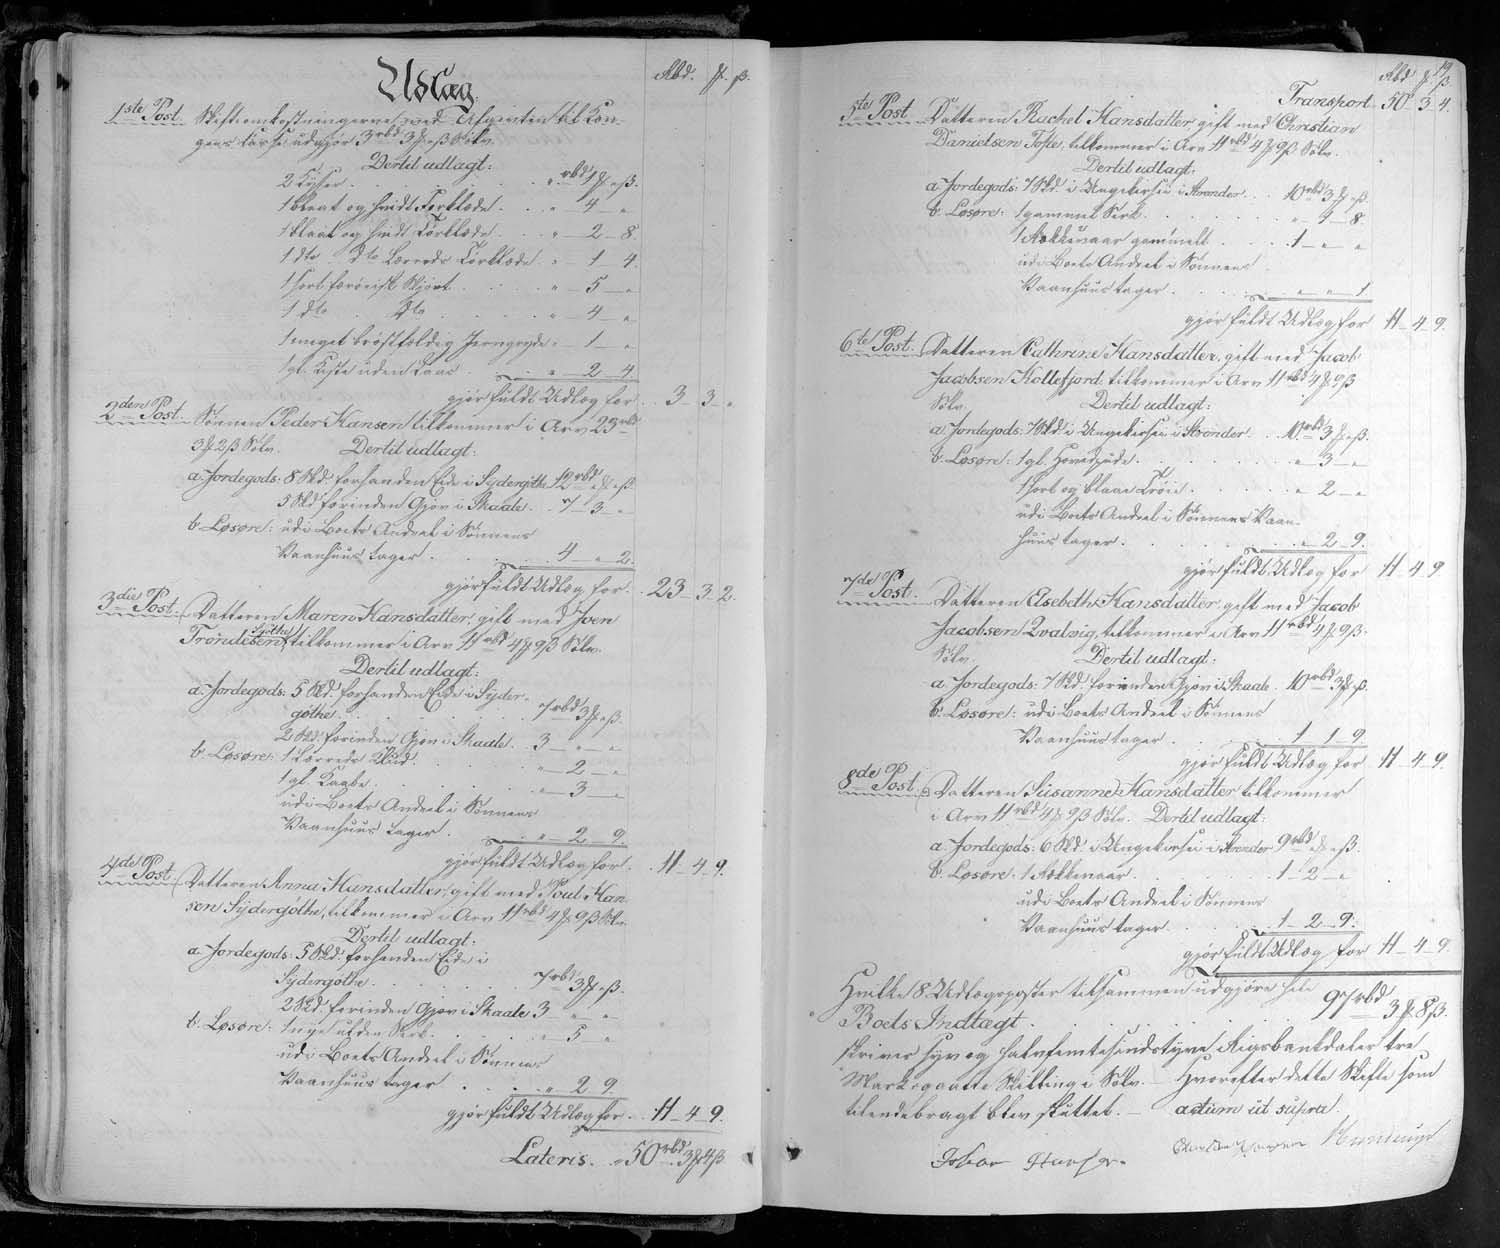 Udlæg.
Rbd. ₻. ß.
1ste Post. Skifteomkostningerne med Afgiften til Kon-
gens Casse udgjør 3rbd 3₻ "ß Sølv.
Dertil udlagt:
2 Kyser . . . . . "rbd 1₻ "ß.
1 blaat og hvidt Forklæde . . " — 4 — "
1 blaat og hvidt Tørklæde . . " — 2 — 8.
1 dto dto Lærreds Tørklæde . . " — 1 — 4.
1 sort færøisk Skjørt . . . . " — 5 — "
1 dto . dto . . . . " — 4 — "
1 meget brøstfældig Jerngryde " — 1 — "
1 gl. Kiste uden Laas . . . " — 2 — 4
gjør fuldt Udlæg for . . 3 — 3 — "
2den Post. Sønnen Peder Hansen tilkommer i Arv 23rbd
3₻ 2ß Sølv. Dertil udlagt:
a. Jordegods: 8 Skd: forhanden Eide i Sydergøthe 12rbd "₻ "ß.
5 Skd forinden Gjov i Skaale . . 7 — 3 — "
b. Løsøre: udi Boets Andeel i Sønnens
Vaanhuus tager . . . . . 4 — " — 2.
gjør fuldt Udlæg for . . 23 — 3 — 2.
3die Post. Datteren Maren Hansdatter, gift med Joen
Trondesen Gøthe, tilkommer i Arv 11rbd 4₻ 9ß Sølv.
Dertil udlagt:
a. Jordegods: 5 Skd. forhanden Eide i Syder-
gøthe . . . . . 7rbd 3₻ "ß.
2 Skd. forinden Gjov i Skaale . . 3 — " — "
b. Løsøre: 1 Lærreds Klud . . . . " — 2 — "
1 gl. Kaabe . . . . . " — 3 — "
udi Boets Andeel i Sønnens
Vaanhuus tager . . . . " — 2 — 9.
gjør fuldt Udlæg for . . 11 — 4 — 9.
4de Post. Datteren Anna Hansdatter, gift med Poul Han-
sen Sydergøthe, tilkommer i Arv 11rbd 4₻ 9ß Sølv.
Dertil udlagt:
a. Jordegods: 5 Skd: forhanden Eide i
Sydergøthe . . . . . 7rbd 3₻ "ß.
2 Skd. forinden Gjov i Skaale 3 " "
b. Løsøre: 1 nye ulden Serk . . . " — 5 — "
udi Boets Andeel i Sønnens
Vaanhuus tager . . . . " 2 9.
gjør fuldt Udlæg for . . 11 — 4 — 9.
Lateris . . 50rbd 3₻ 4ß
19
Rbd ₻ ß
Transport 50 — 3 — 4.
5te Post Datteren Rachel Hansdatter, gift med Christian
Danielsen Tofte, tilkommer i Arv 11rbd 4₻ 9ß Sølv.
Dertil udlagt:
a. Jordegods: 7 Skd. i Ungekirsei i Strender . . 10rbd 3₻ "ß.
b. Løsøre: 1 gammel Serk . . . . " — 1 — 8.
1 Rokkenaar gammelt . . . . 1 — " — "
udi Boets Andeel i Sønnens
Vaanhuus tager . . . . . " — " — 1
gjør fuldt Udlæg for 11 — 4 — 9.
6te Post. Datteren Cathrine Hansdatter, gift med Jacob
Jacobsen Kollefjord, tilkommer i Arv 11rbd 4₻ 9ß
Sølv. Dertil udlagt:
a. Jordegods: 7 Skd: i Ungekirsei i Strender . . 10rbd 3₻ "ß.
b. Løsøre: 1 gl. Hovedpude . . . . " — 3 — "
1 sort og blaae Trøie . . . . " — 2 — "
udi Boets Andeel i Sønnens Vaan-
huus tager . . . . . " — 2 — 9.
gjør fuldt Udlæg for 11 — 4 — 9
7de Post. Datteren Elsebeth Hansdatter, gift med Jacob
Jacobsen Qvalvig, tilkommer i Arv 11rbd 4₻ 9ß.
Sølv. Dertil udlagt:
a. Jordegods: 7 Skd: forinden Gjov i Skaale . 10rbd 3₻ "ß.
b. Løsøre: udi Boets Andeel i Sønnens
Vaanhuus tager . . . . 1 1 9.
gjør fuldt Udlæg for 11 — 4 — 9.
8de Post. Datteren Susanne Hansdatter tilkommer
i Arv 11rbd 4₻ 9ß Sølv. Dertil udlagt:
a. Jordegods: 6 Skd: i Ungekirsei i Strender 9rbd "₻ "ß.
b. Løsøre: 1 Rokkenaar . . . . 1 — 2 — "
udi Boets Andeel i Sønnens
Vaanhuus tager . . . . 1 — 2 — 9.
gjør fuldt Udlæg for 11 — 4 — 9.
Hvilke 8 Udlægsposter tilsammen udgjøre hele
Boets Indtægt . . . . . 97rbd 3₻ 8ß.
skriver syv og halvfemtesindstyve Rigsbankdaler tre
Mark og aatte Skilling i Sølv. — Hvorefter dette Skifte som
tilendebragt blev sluttet. — actum ut supra.